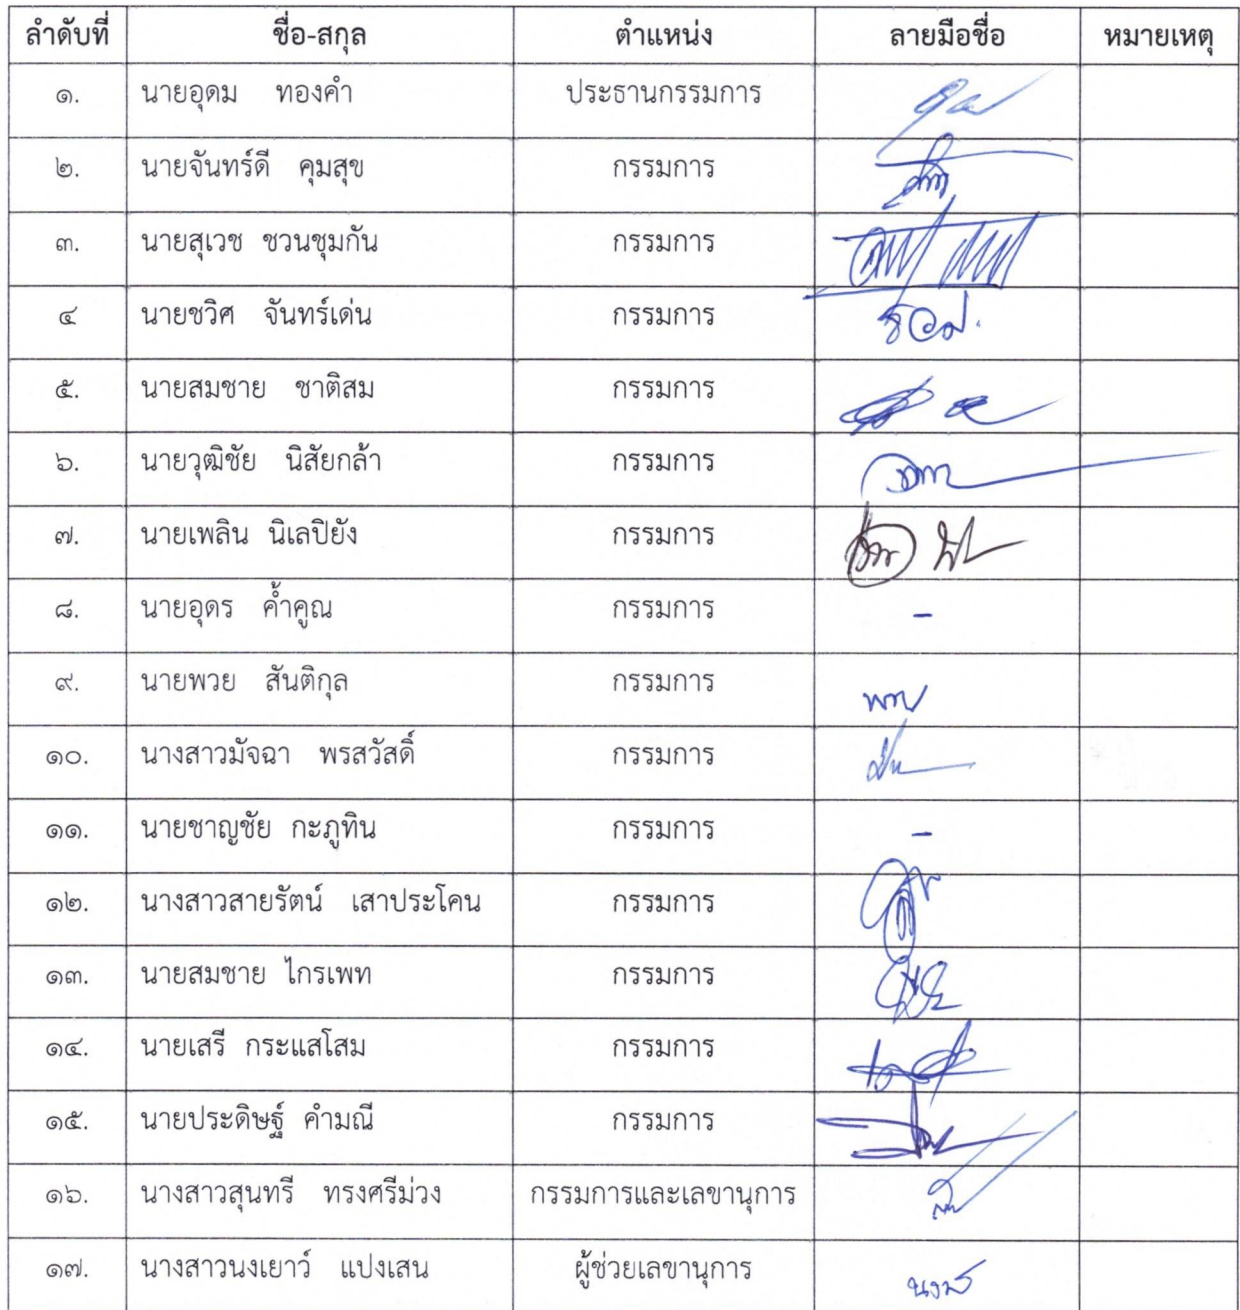 ลำดับที่ ชื่อ-สกุล ตำแหน่ง ลายมือชื่อ หมายเหตุ
๑. นายอุดม ทองคำ ประธานกรรมการ
๒. นายจันทร์ดี คุมสุข กรรมการ
๓. นายสุเวช ชวนชุมกัน กรรมการ
๔ นายชวิศ จันทร์เด่น กรรมการ
๕. นายสมชาย ชาติสม กรรมการ
๖. นายวุฒิชัย นิสัยกล้า กรรมการ
๗. นายเพลิน นิเลปิยัง กรรมการ
๘. นายอุดร ค้ำคูณ กรรมการ -
๙. นายพวย สันติกุล กรรมการ
๑๐. นางสาวมัจฉา พรสวัสดิ์ กรรมการ
๑๑. นายชาญชัย กะภูทิน กรรมการ -
๑๒. นางสาวสายรัตน์ เสาประโคน กรรมการ
๑๓. นายสมชาย ไกรเพท กรรมการ
๑๔. นายเสรี กระแสโสม กรรมการ
๑๕. นายประดิษฐ์ คำมณี กรรมการ
๑๖. นางสาวสุนทรี ทรงศรีม่วง กรรมการและเลขานุการ
๑๗. นางสาวนงเยาว์ แปงเสน ผู้ช่วยเลขานุการ